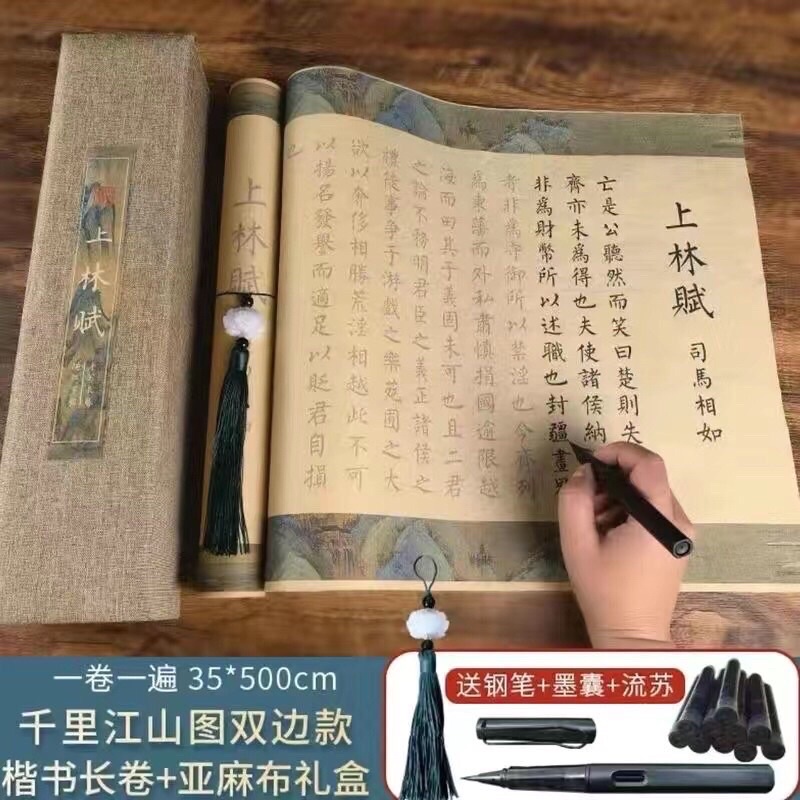 上林賦
上林賦
上林賦
司馬相如
亡是公聽然而笑曰楚則失
齊亦未爲得也夫使諸侯納
非爲財幣所以述職也封疆畫
者非爲守御所以禁淫也今齊列
爲東藩而外私肅慎捐國逾限越
海而田其于義固未可也且二君
之論不務明君臣之義正諸侯之
禮徒事爭于游戲之樂苑囿之大
欲以奢侈相勝荒淫相越此不可
以揚名發譽而適足以貶君自損
一卷一遍 35*500cm
千里江山图双边款
楷书长卷+亚麻布礼盒
送钢笔+墨囊+流苏